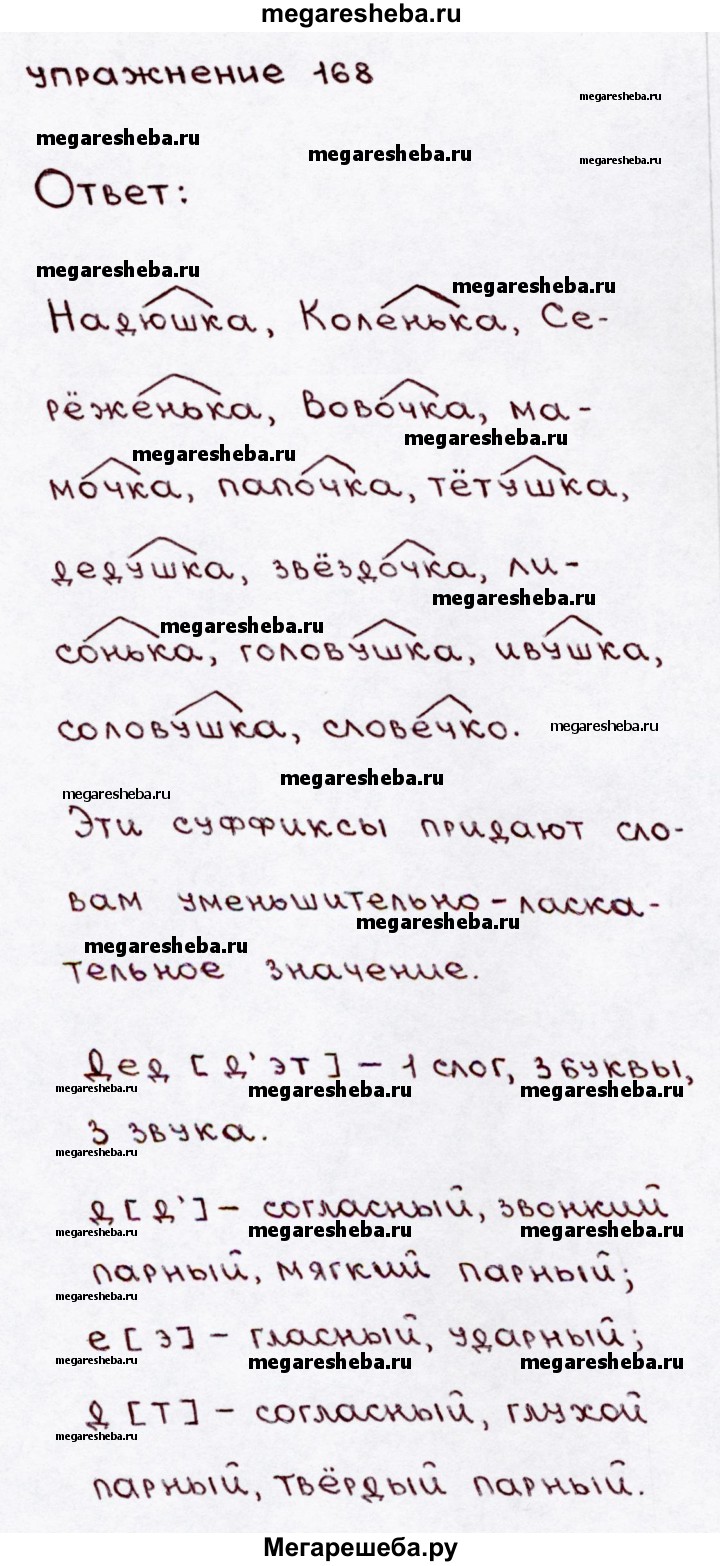 megaresheba.ru
упражнение 168
megaresheba.ru
megaresheba.ru
megaresheba.ru
megaresheba.ru
Ответ:
megaresheba.ru
megaresheba.ru
Надюшка, Коленька, Се-
рёженька, Вовочка, ма-
megaresheba.ru
megaresheba.ru
мочка, папочка, тётушка,
дедушка, звёздочка, ли-
megaresheba.ru
megaresheba.ru
сонька, головушка, ивушка,
соловушка, словечко.
megaresheba.ru
megaresheba.ru
megaresheba.ru
Эти суффиксы придают сло-
вам уменьшительно-ласка-
megaresheba.ru
megaresheba.ru
тельное значение.
Дед [д'эт] – 1 слог, 3 буквы,
megaresheba.ru megaresheba.ru megaresheba.ru
3 звука.
megaresheba.ru
д [д'] – согласный, звонкий
megaresheba.ru megaresheba.ru megaresheba.ru
парный, мягкий парный;
megaresheba.ru
е [э] – гласный, ударный;
megaresheba.ru megaresheba.ru megaresheba.ru
д [т] – согласный, глухой
megaresheba.ru
парный, твёрдый парный.
Мегарешеба.ру